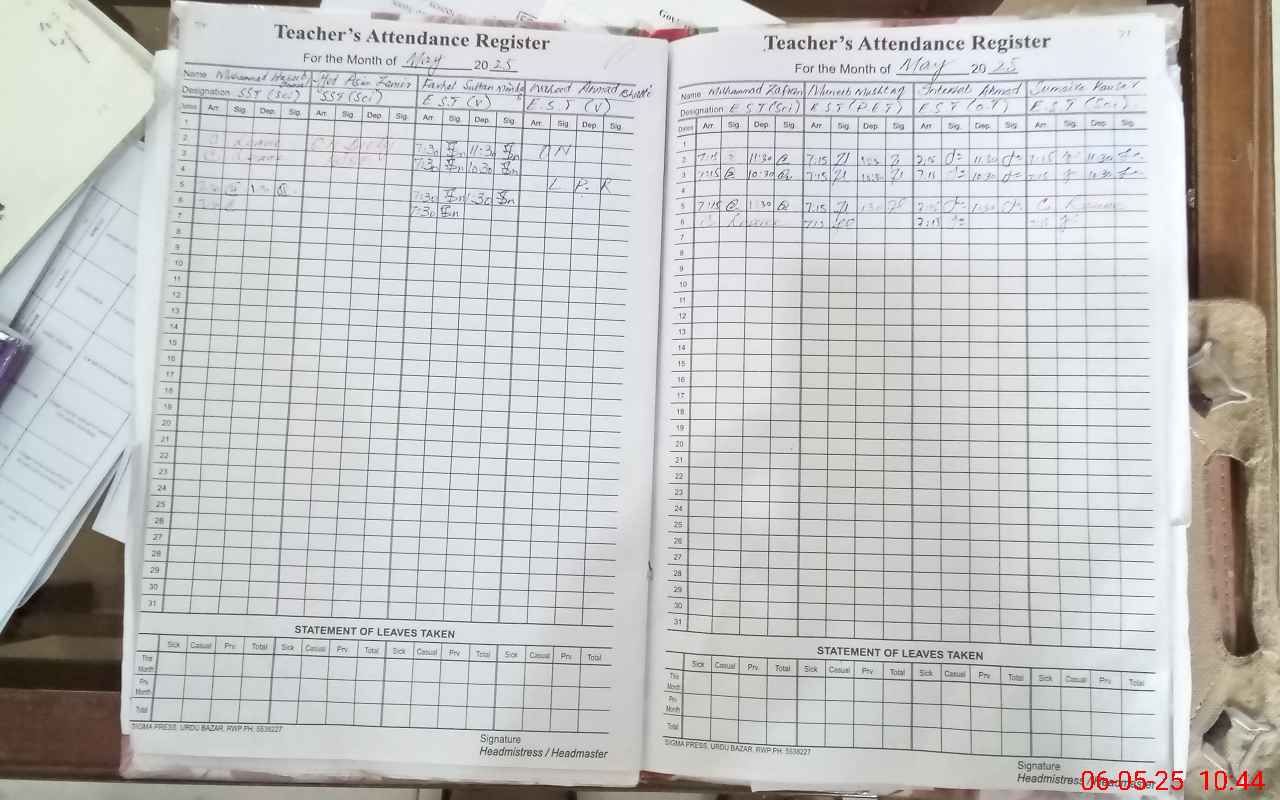 Teacher's Attendance Register
For the Month of May 2025
Name Muhammad Farkhat Sultan Ahmad
Designation SST (Sci) SST (Sci) E.S.T (V) E.S.T (V)
Dates Arr. Sig. Dep. Sig. Arr. Sig. Dep. Sig. Arr. Sig. Dep. Sig. Arr. Sig. Dep. Sig.
1
2 C. Leave 7:30 11:30
3 C. Leave 7:30 10:30
4 L P. R
5 7:30 1:30
6 7:30
7
8
9
10
11
12
13
14
15
16
17
18
19
20
21
22
23
24
25
26
27
28
29
30
31
STATEMENT OF LEAVES TAKEN
Sick Casual Prv. Total Sick Casual Prv. Total Sick Casual Prv. Total Sick Casual Prv. Total
This Month
Prv. Month
Total
SIGMA PRESS, URDU BAZAR, RWP.PH: 5538227
Signature
Headmistress / Headmaster
Teacher's Attendance Register
For the Month of May 2025
Name Muhammad Zafran Muneeb Mushtaq Ahmad Sumaira Kausar
Designation E.S.T (Sci) E.S.T (P.E.T) E.S.T (O.T) E.S.T (Sci)
Dates Arr. Sig. Dep. Sig. Arr. Sig. Dep. Sig. Arr. Sig. Dep. Sig. Arr. Sig. Dep. Sig.
1
2 7:15 11:30 7:15 7:15 11:30 7:15 11:30
3 7:15 10:30 7:15 10:30 7:15 10:30 7:15 10:30
4
5 7:15 1:30 7:15 1:30 7:15 1:30 C. Leave
6 C. Leave 7:15 7:15 7:15
7
8
9
10
11
12
13
14
15
16
17
18
19
20
21
22
23
24
25
26
27
28
29
30
31
STATEMENT OF LEAVES TAKEN
Sick Casual Prv. Total Sick Casual Prv. Total Sick Casual Prv. Total Sick Casual Prv. Total
This Month
Prv. Month
Total
SIGMA PRESS, URDU BAZAR, RWP.PH: 5538227
Signature
Headmistress / Headmaster
06-05-25 10:44